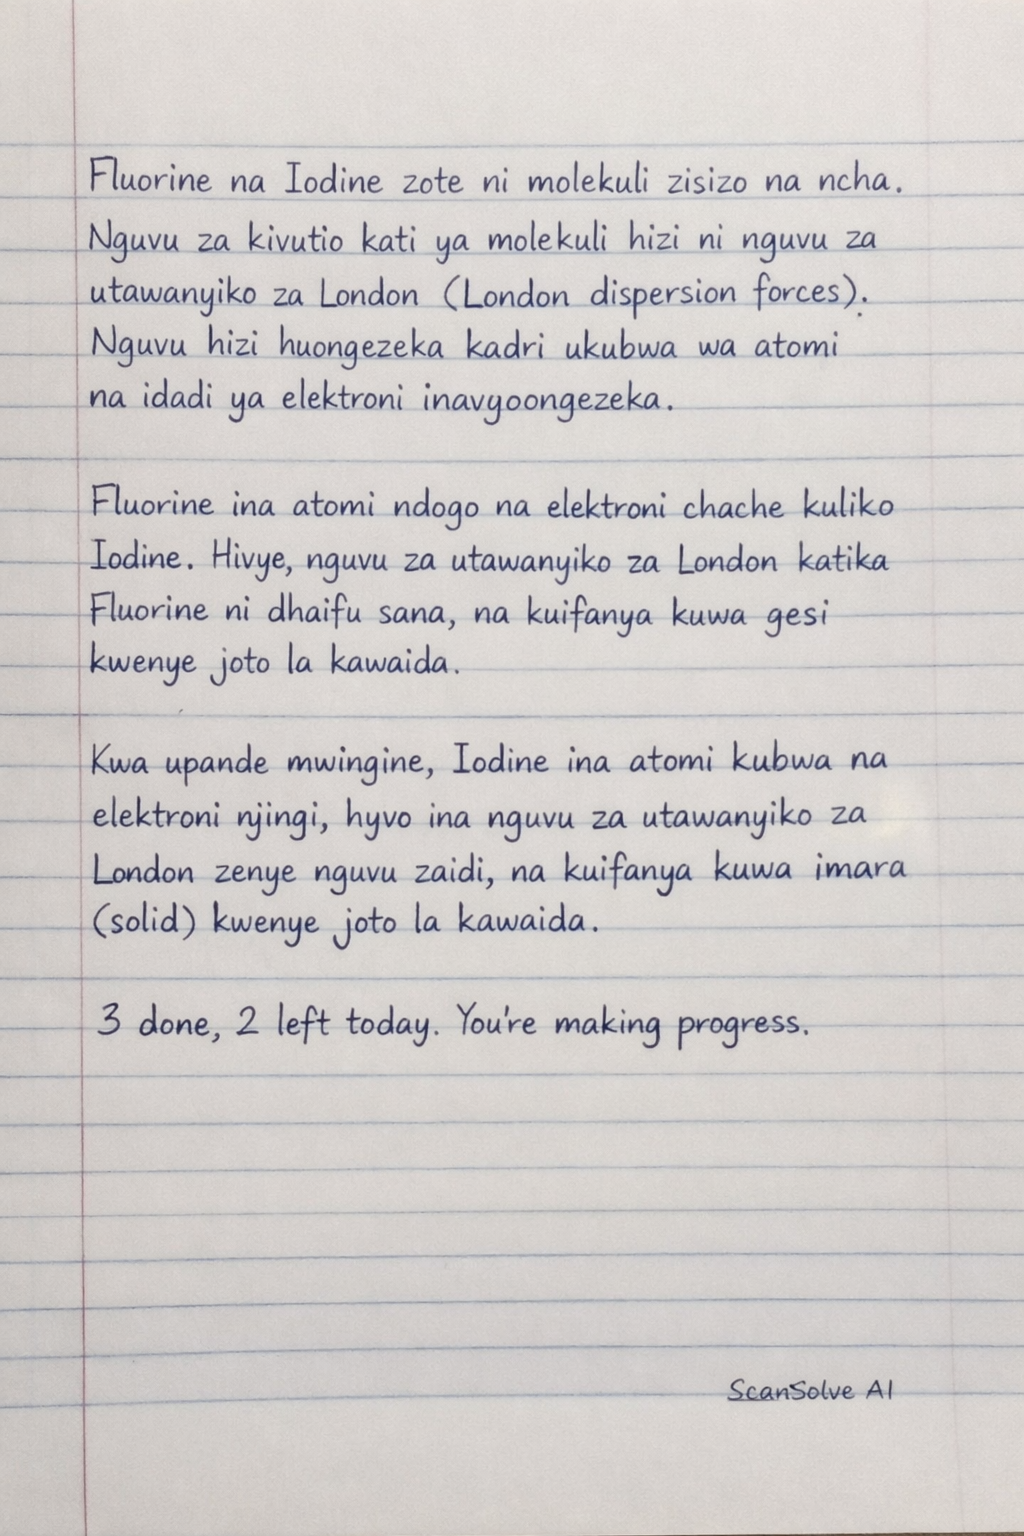 Fluorine na Iodine zote ni molekuli zisizo na ncha.
Nguvu za kivutio kati ya molekuli hizi ni nguvu za
utawanyiko za London (London dispersion forces).
Nguvu hizi huongezeka kadri ukubwa wa atomi
na idadi ya elektroni inavyoongezeka.
Fluorine ina atomi ndogo na elektroni chache kuliko
Iodine. Hivye, nguvu za utawanyiko za London katika
Fluorine ni dhaifu sana, na kuifanya kuwa gesi
kwenye joto la kawaida.
Kwa upande mwingine, Iodine ina atomi kubwa na
elektroni njingi, hyvo ina nguvu za utawanyiko za
London zenye nguvu zaidi, na kuifanya kuwa imara
(solid) kwenye joto la kawaida.
3 done, 2 left today. You're making progress.
ScanSolve AI